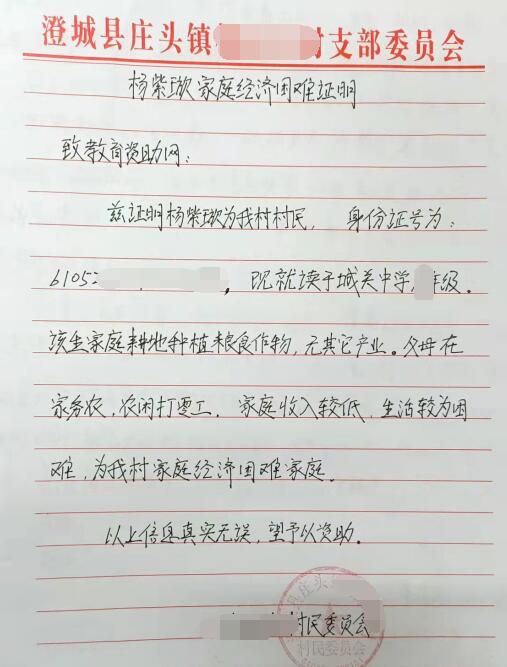 澄城县庄头镇村支部委员会
杨紫璇家庭经济困难证明
致教育资助网：
兹证明杨紫璇为我村村民，身份证号为：
6105，现就读于城关中学，年级。
该生家庭耕地种植粮食作物，无其它产业。父母在
家务农，农闲打零工，家庭收入较低，生活较为困
难，为我村家庭经济困难家庭。
以上信息真实无误，望予以资助。
村民委员会
县庄头
村民委员会